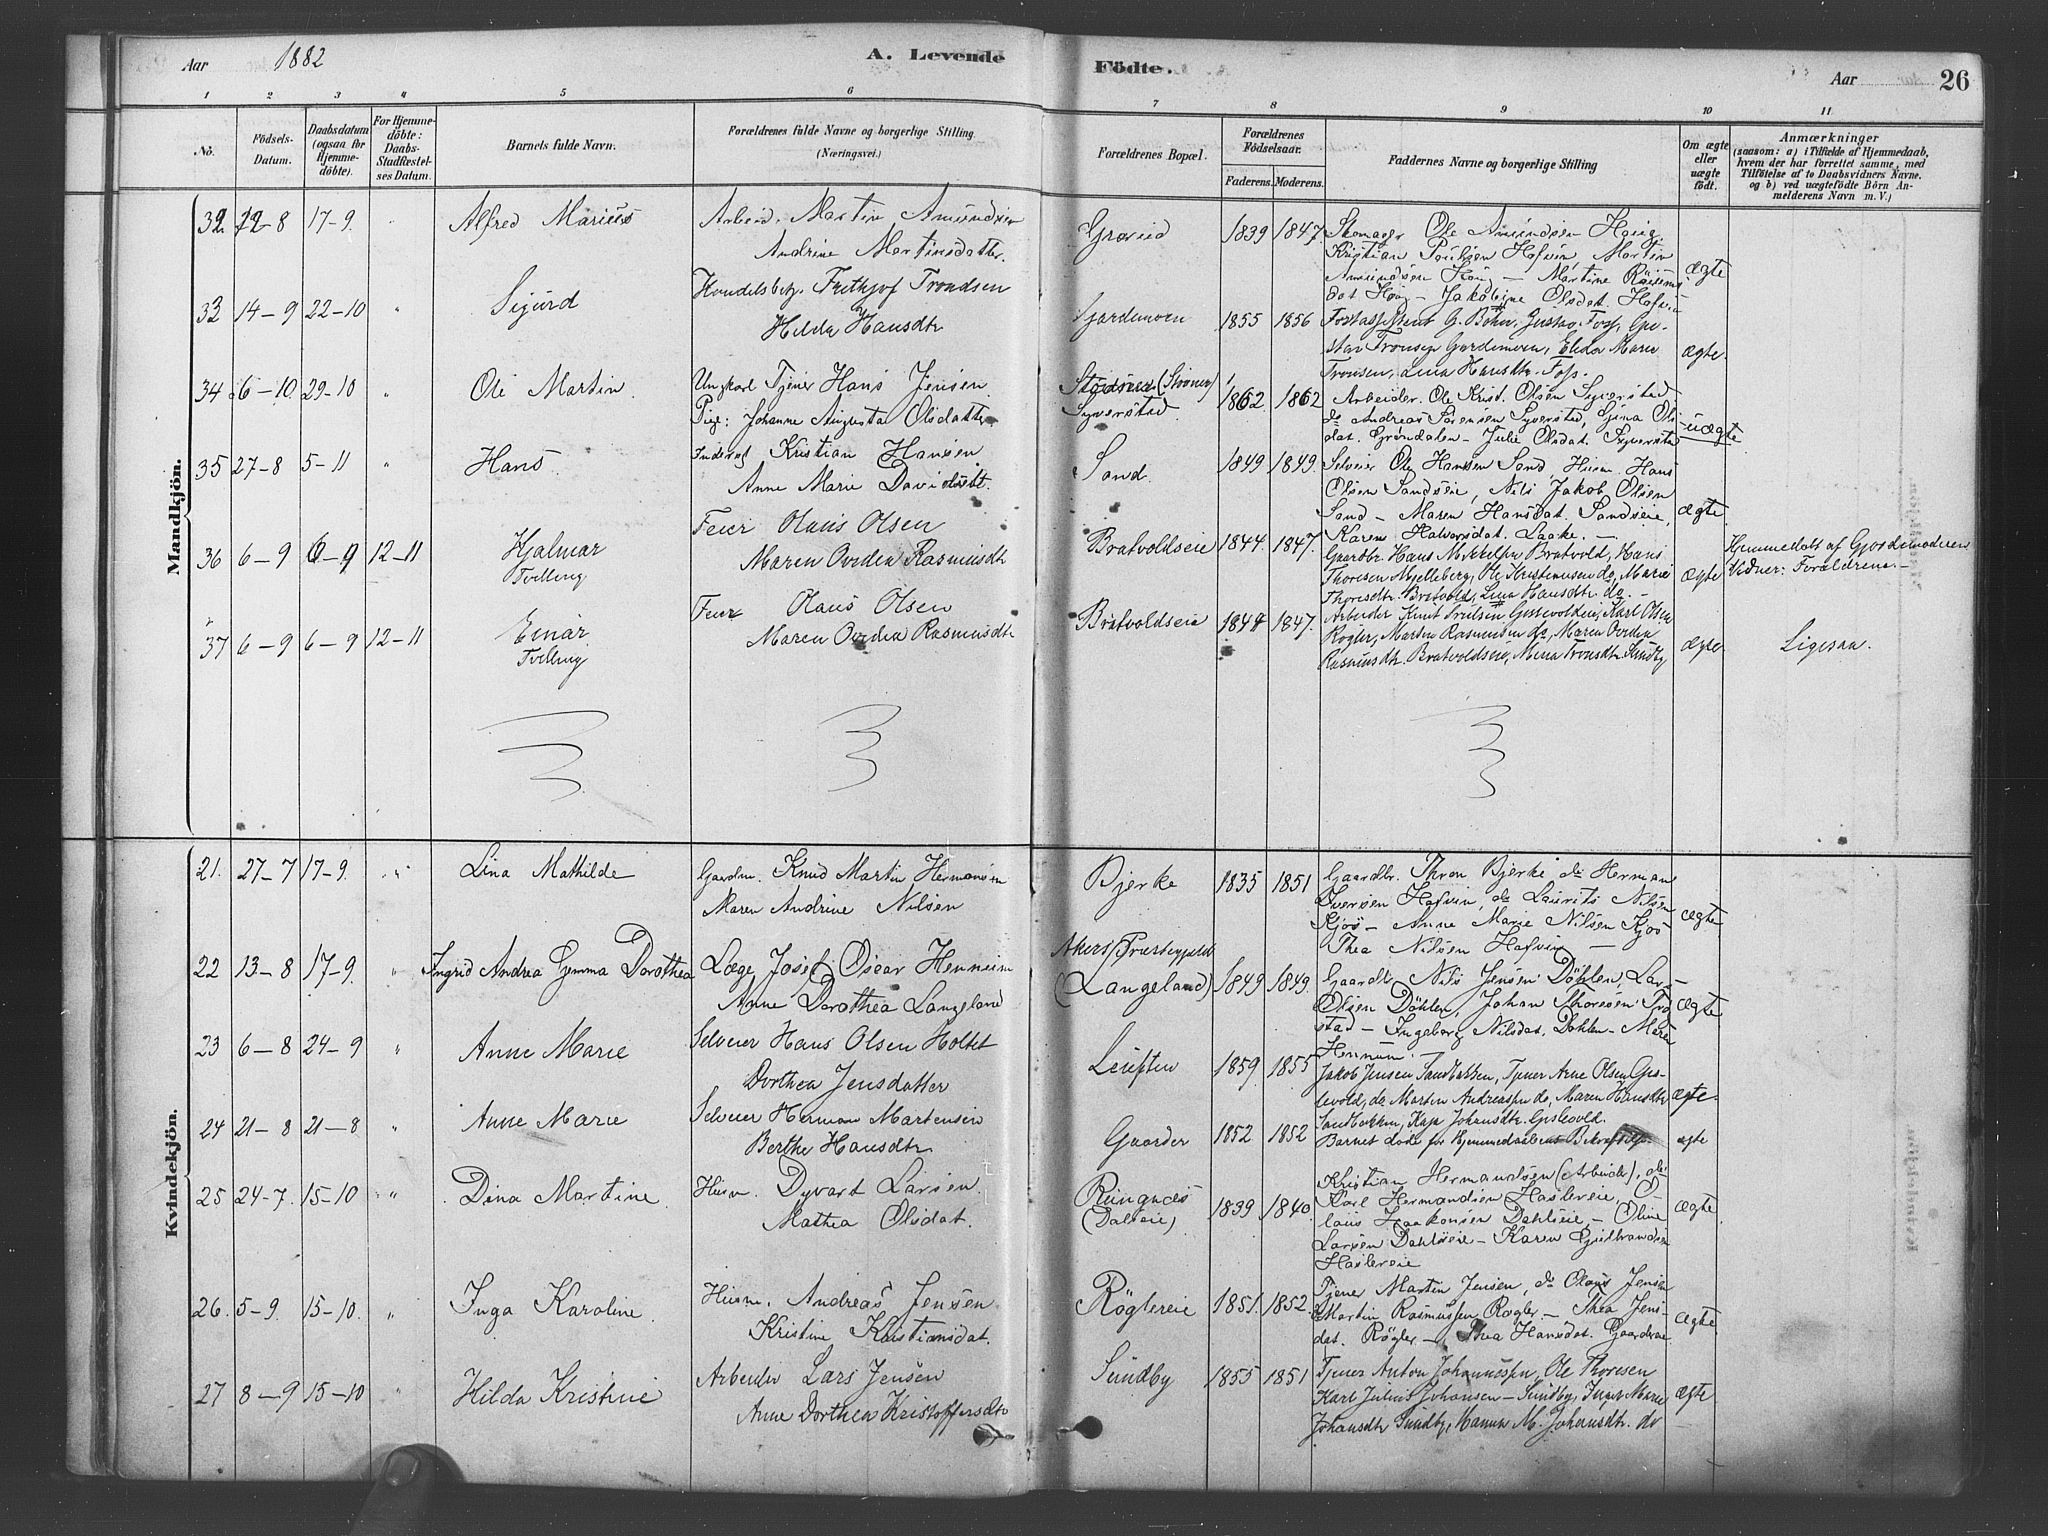 Aar 1882 A. Levende Födte. Aar 26
1 2 3 4 5 6 7 8 9 10 11
No. Födsels-Datum. Daabsdatum (ogsaa for Hjemme-döbte). For Hjemme-döbte: Daabs-Stadfæstel-ses Datum. Barnets fulde Navn. Forældrenes fulde Navne og borgerlige Stilling. (Næringsvei.) Forældrenes Bopæl. Forældrenes Födselsaar. Faderens. Moderens. Faddernes Navne og borgerlige Stilling Om ægte eller uægte födt. Anmærkninger (saasom: a) i Tilfælde af Hjemmedaab, hvem der har forrettet samme, med Tilföielse af to Daabsvidners Navne, og b) ved uægtefödte Börn An-melderens Navn m. V.)
Mandkjön.
32 12-8 17-9 " Alfred Marius Arbeid. Martin Amundsen
Andrine Martinsdatter. 1839 1847 Skomager Ole Amundsen Haug,
Kristian Poulsen Hafvin, Martin
ægte
33 14-9 22-10 " Sigurd Handelsbetj. Frithjof Trondsen
Hilda Hansdtr Gardemoen 1855 1856
Tronsen, Lina Hansdtr. Foss. ægte
34 6-10 29-10 " Ole Martin Ungkarl Tjener Hans Jensen
Pige: Johanne Augusta Olsdatter Syverstad 1862 1862 Arbeider. Ole Krist. Olsen Syverstad
do Andreas Sørensen Syverstad, Gina Ols
dat. Grøndalen - Julie Olsdat. Syverstad uægte
35 27-8 5-11 " Hans Inderst Kristian Hansen
Anne Marie Davidsdt. Sand. 1849 1849. Selveier Ole Hansen Sand, Husm. Hans
Olsen Sandseie, Nils Jakob Olsen
Sand - Maren Hansdat. Sandseie, ægte
Karen Halvorsdat. Laake. -
36 6-9 6-9 12-11 Hjalmar
Tvilling Feier Olaus Olsen
Maren Ovidia Rasmusdtr Bratvoldseie 1844 1847. Gaardbr. Hans Mikkelsen Bratvold, Hans
Thoresen Mjelleberg, Ole Kristensen do, Marie
Thoresdtr. Bratvold, Lina Hansdtr. do. - ægte Hjemmedøbt af Gjordemoderen
Vidner: Forældrene. -
37 6-9 6-9 12-11 Einar
Tvilling Feier Olaus Olsen
Maren Ovidia Rasmusdtr Bratvoldseie 1844 1847. Karl Olsen
Røgler, Martin Rasmussen do, Maren Ovidia
Rasmusdtr. Bratvoldseie, Tronsdtr. Sundby ægte Ligesaa.
Kvindekjön.
21. 27-7 17-9. " Lina Mathilde Gaardm. Knud Martin Hermansen
Maren Andrine Nilsen Bjerke 1835 1851 Gaardbr. Thron Bjerke do Herman
Iversen Hafvin, do Laurits Nilsen
Kjos - Anne Marie Nilsen Kjos
Thea Nilsen Hafvin - ægte
22 13-8 17-9. " Ingrid Andrea Gemma Dorothea Læge Josef Oscar Hennum
Anne Dorothea Langeland Akers Præstegjeld
(Langeland) 1849 1849. Gaardb. Nils Jensen Döhlen, Lars
Olsen Döhlen, Johan Thoresen
stad - Ingeborg Nilsdat. Dohlen - Maren
Hennum. ægte
23 6-8 24-9 " Anne Marie Selveier Hans Olsen Holtet
Dorthea Jensdatter Leuften 1859 1855 Jakob Jensen Sandbakken, Tjener Arne Olsen Gis-
levold, do Martin Andreassen do, Maren Hansdtr
Sandbakken, Kaja Johansdtr. Gislevold. ægte.
24 21-8 21-8 " Anne Marie Selveier Herman Martensen
Berthe Hansdtr Gaarder 1852 1852 Barnet døde før Hjemmedaabens Bekræftelse. ægte
25 24-7. 15-10 " Dina Martine. Husm. Dyvart Larsen
Mathea Olsdat. Rungnæs
(Dalseie) 1839 1840. Kristian Hermandsen (Arbeide), do
Karl Hermandsen Haslereie, O-
laus Haakonsen Dahlseie, - Oline
Larsen Dahlseie - Karen Gudbrandsen
Haslereie ægte
26. 5-9. 15-10. " Inga Karoline Husm. Andreas Jensen
Kristine Kristiansdat. Röglereie 1851. 1852. Tjener Martin Jensen, do Olaus Jensen
Martin Rasmussen Rögler - Thea Jens-
dat. Røgler - Thea Hansdat. Gaardereie ægte
27 8-9 15-10 " Hilda Kristine Arbeider Lars Jensen
Anne Dorthea Kristoffersdtr Sundby 1855 1851 Tjener Anton Johannessen, Ole Thoresen
Karl Julius Johansen - Sundby, Inger Marie
Johansdtr Sundby, Hanna M. Johansdtr. do ægte